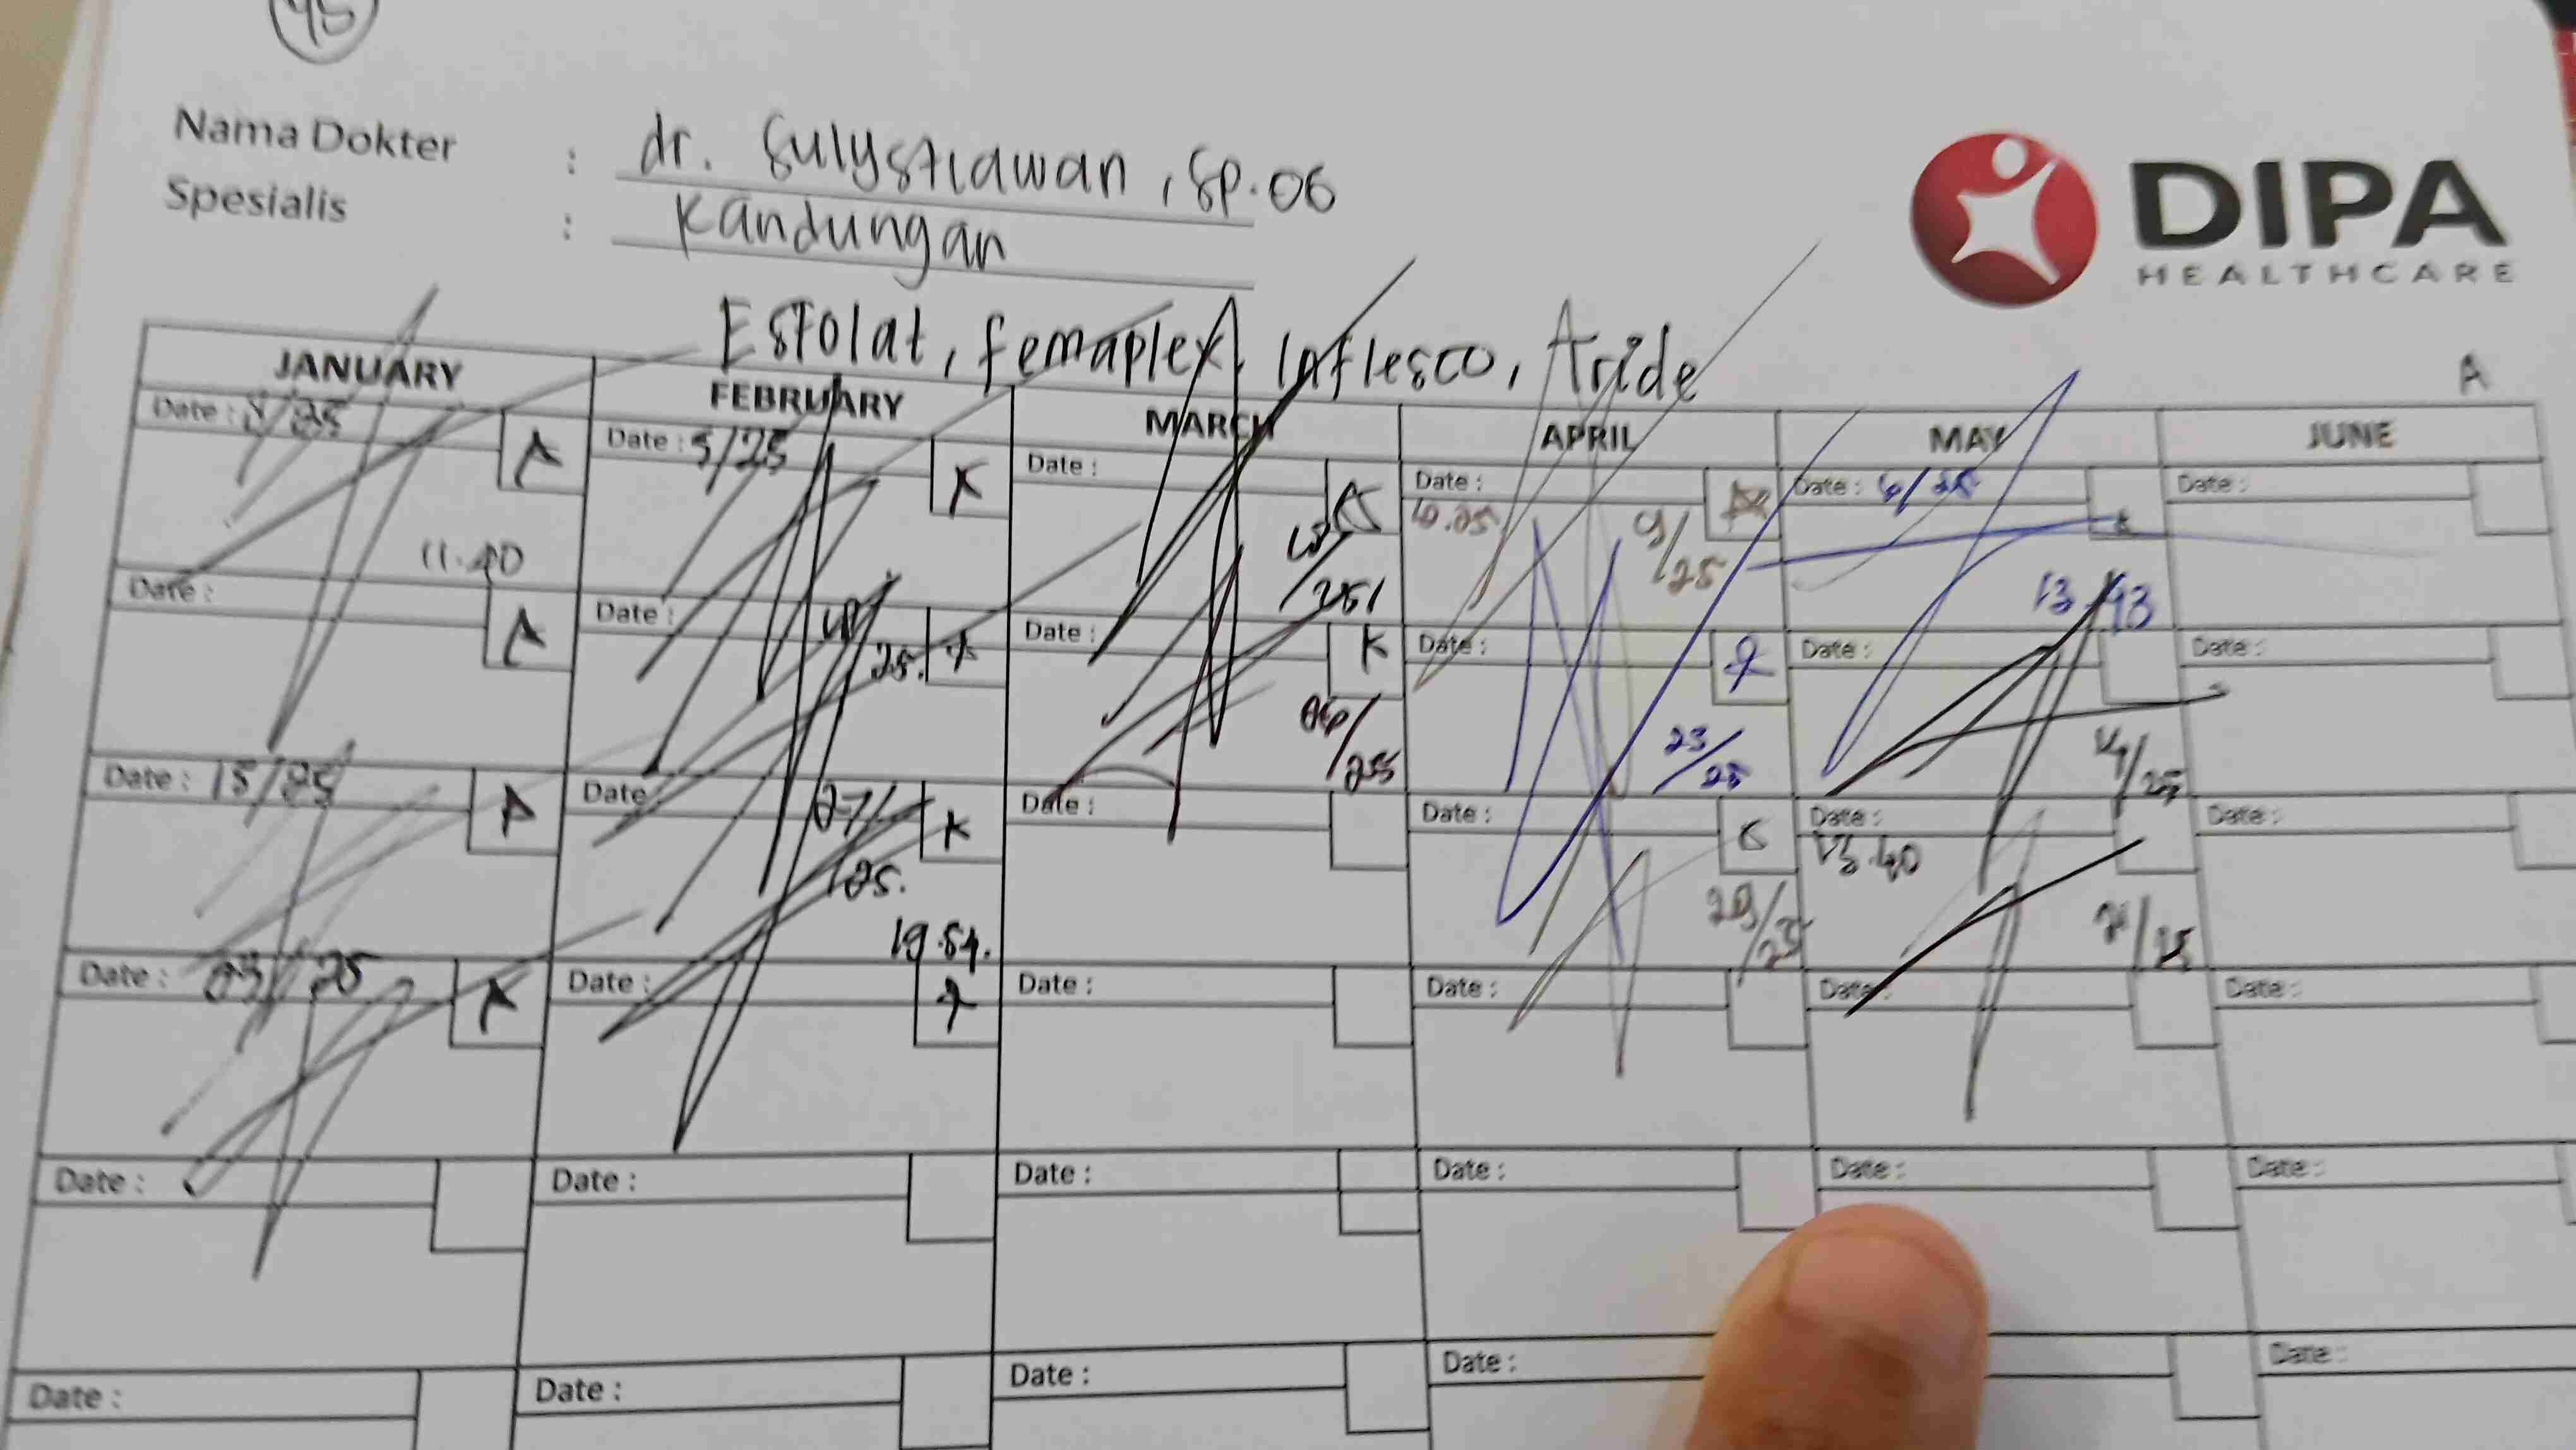 45
Nama Dokter : dr. Sulystiawan, Sp.OG
Spesialis : Kandungan
DIPA
HEALTHCARE
Esfolat, femaplex, Inflesco, Aride
A
JANUARY FEBRUARY MARCH APRIL MAY JUNE
Date : 8/25 A Date : 5/25 K Date : A Date : A Date : 6/25 Date :
11.40 /251 10.25 9/25 13.43
Date : A Date : 25. Date : K Date : Date : Date :
06/255 23/25 14/25
Date : 15/25 A Date : 27/ K Date : Date : Date : Date :
/25. 13.40
19.54. 29/25 21/25
Date : 23/25 A Date : Date : Date : Date : Date :
Date : Date : Date : Date : Date : Date :
Date : Date : Date : Date : Date :